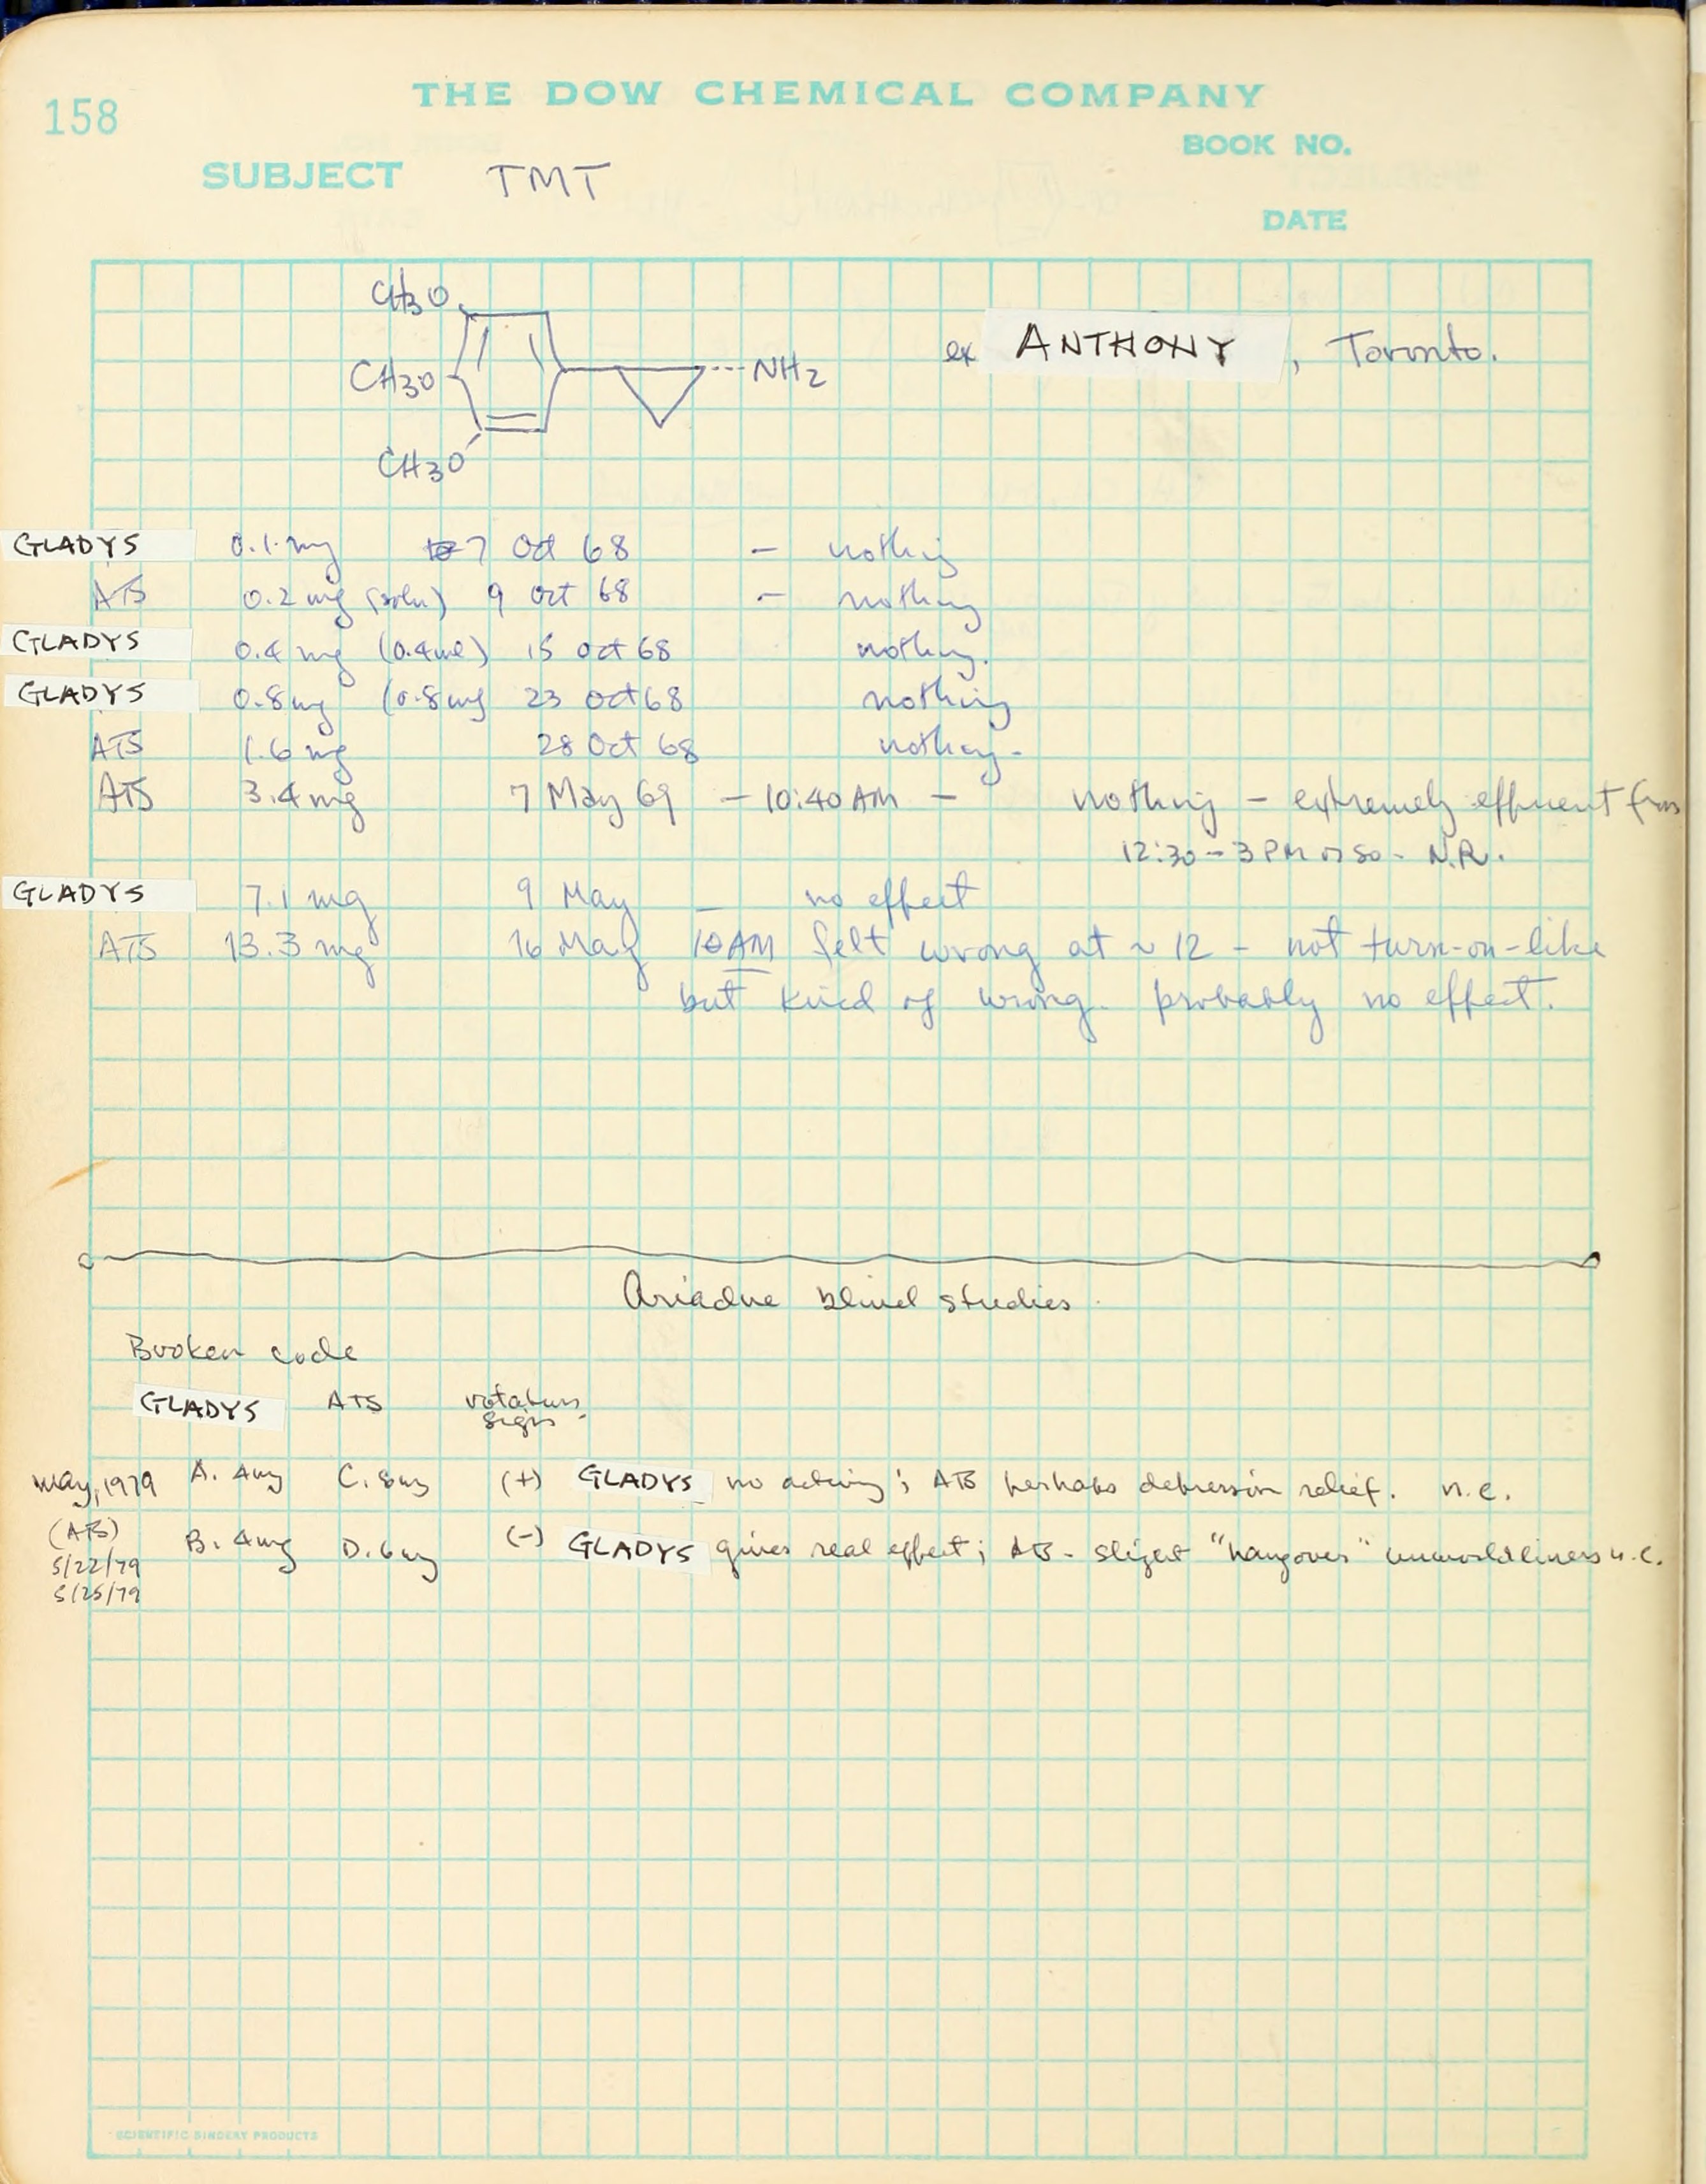 THE DOW CHEMICAL COMPANY
158
BOOK NO.
SUBJECT TMT
DATE
CH3O
CH3O
NH2
CH3O
ex ANTHONY, Toronto.
GLADYS 0.1 mg 7 Oct 68 – nothing
ATS 0.2 mg (soln) 9 Oct 68 – nothing
GLADYS 0.4 mg (0.4ml) 15 Oct 68 nothing.
GLADYS 0.8mg (0.8mg 23 Oct 68 nothing
ATS 1.6 mg 28 Oct 68 nothing.
ATS 3.4 mg 7 May 69 – 10:40 AM – nothing – extremely efficient from
12:30 – 3 PM or so – N.R.
GLADYS 7.1 mg 9 May – no effect
ATS 13.3 mg 16 May 10AM felt wrong at ~ 12 – not turn-on-like
but kind of wrong. probably no effect.
Ariadne blind studies.
Broken code
GLADYS ATS rotation
sign
May, 1979 A. 4mg C. 8mg (+) GLADYS no activity; ATS perhaps depression relief. n.e.
(ATS) B. 4mg D. 6mg (-) GLADYS gives real effect; ATS - slight "hangover" unworldliness n.e.
5/22/79
5/25/79
SCIENTIFIC BINDERY PRODUCTS